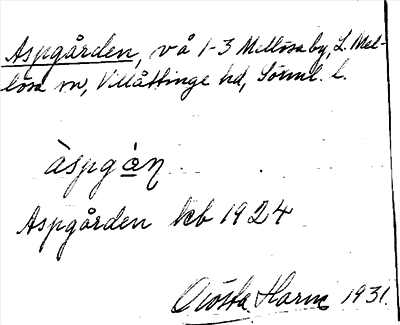 Aspgården, vå 1-3 Mellösa by, L. Mel-
lösa sn, Villåttinge hd, Sörml. l.
àspgàn
Aspgården kb 1924
Gösta Harne 1931.